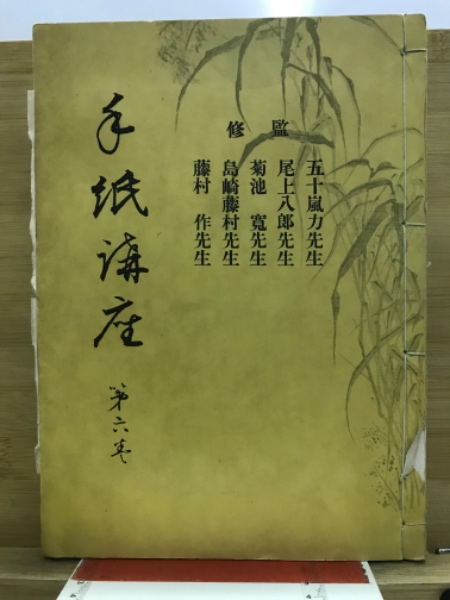 監修
五十嵐力先生
尾上八郎先生
菊池 寛先生
島崎藤村先生
藤村 作先生
手紙講座
第六巻